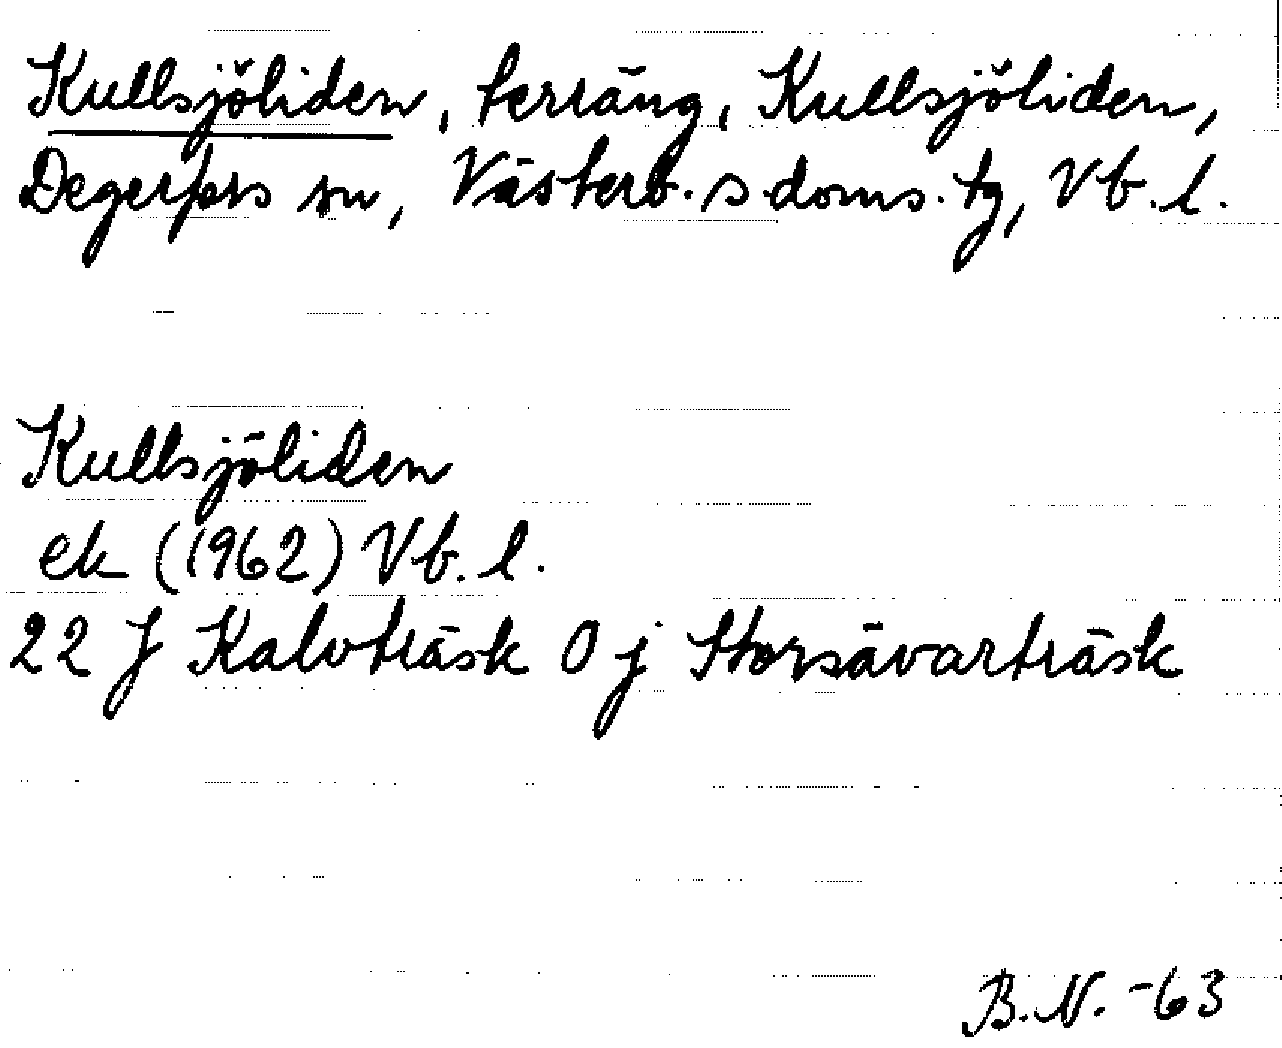 Kullsjöliden, terräng, Kullsjöliden,
Degerfors sn, Västerb. s. doms. tg, Vb. l.
Kullsjöliden
ek (1962) Vb. l.
22 J Kalvträsk 0 j Storsävarträsk
B.N. -63